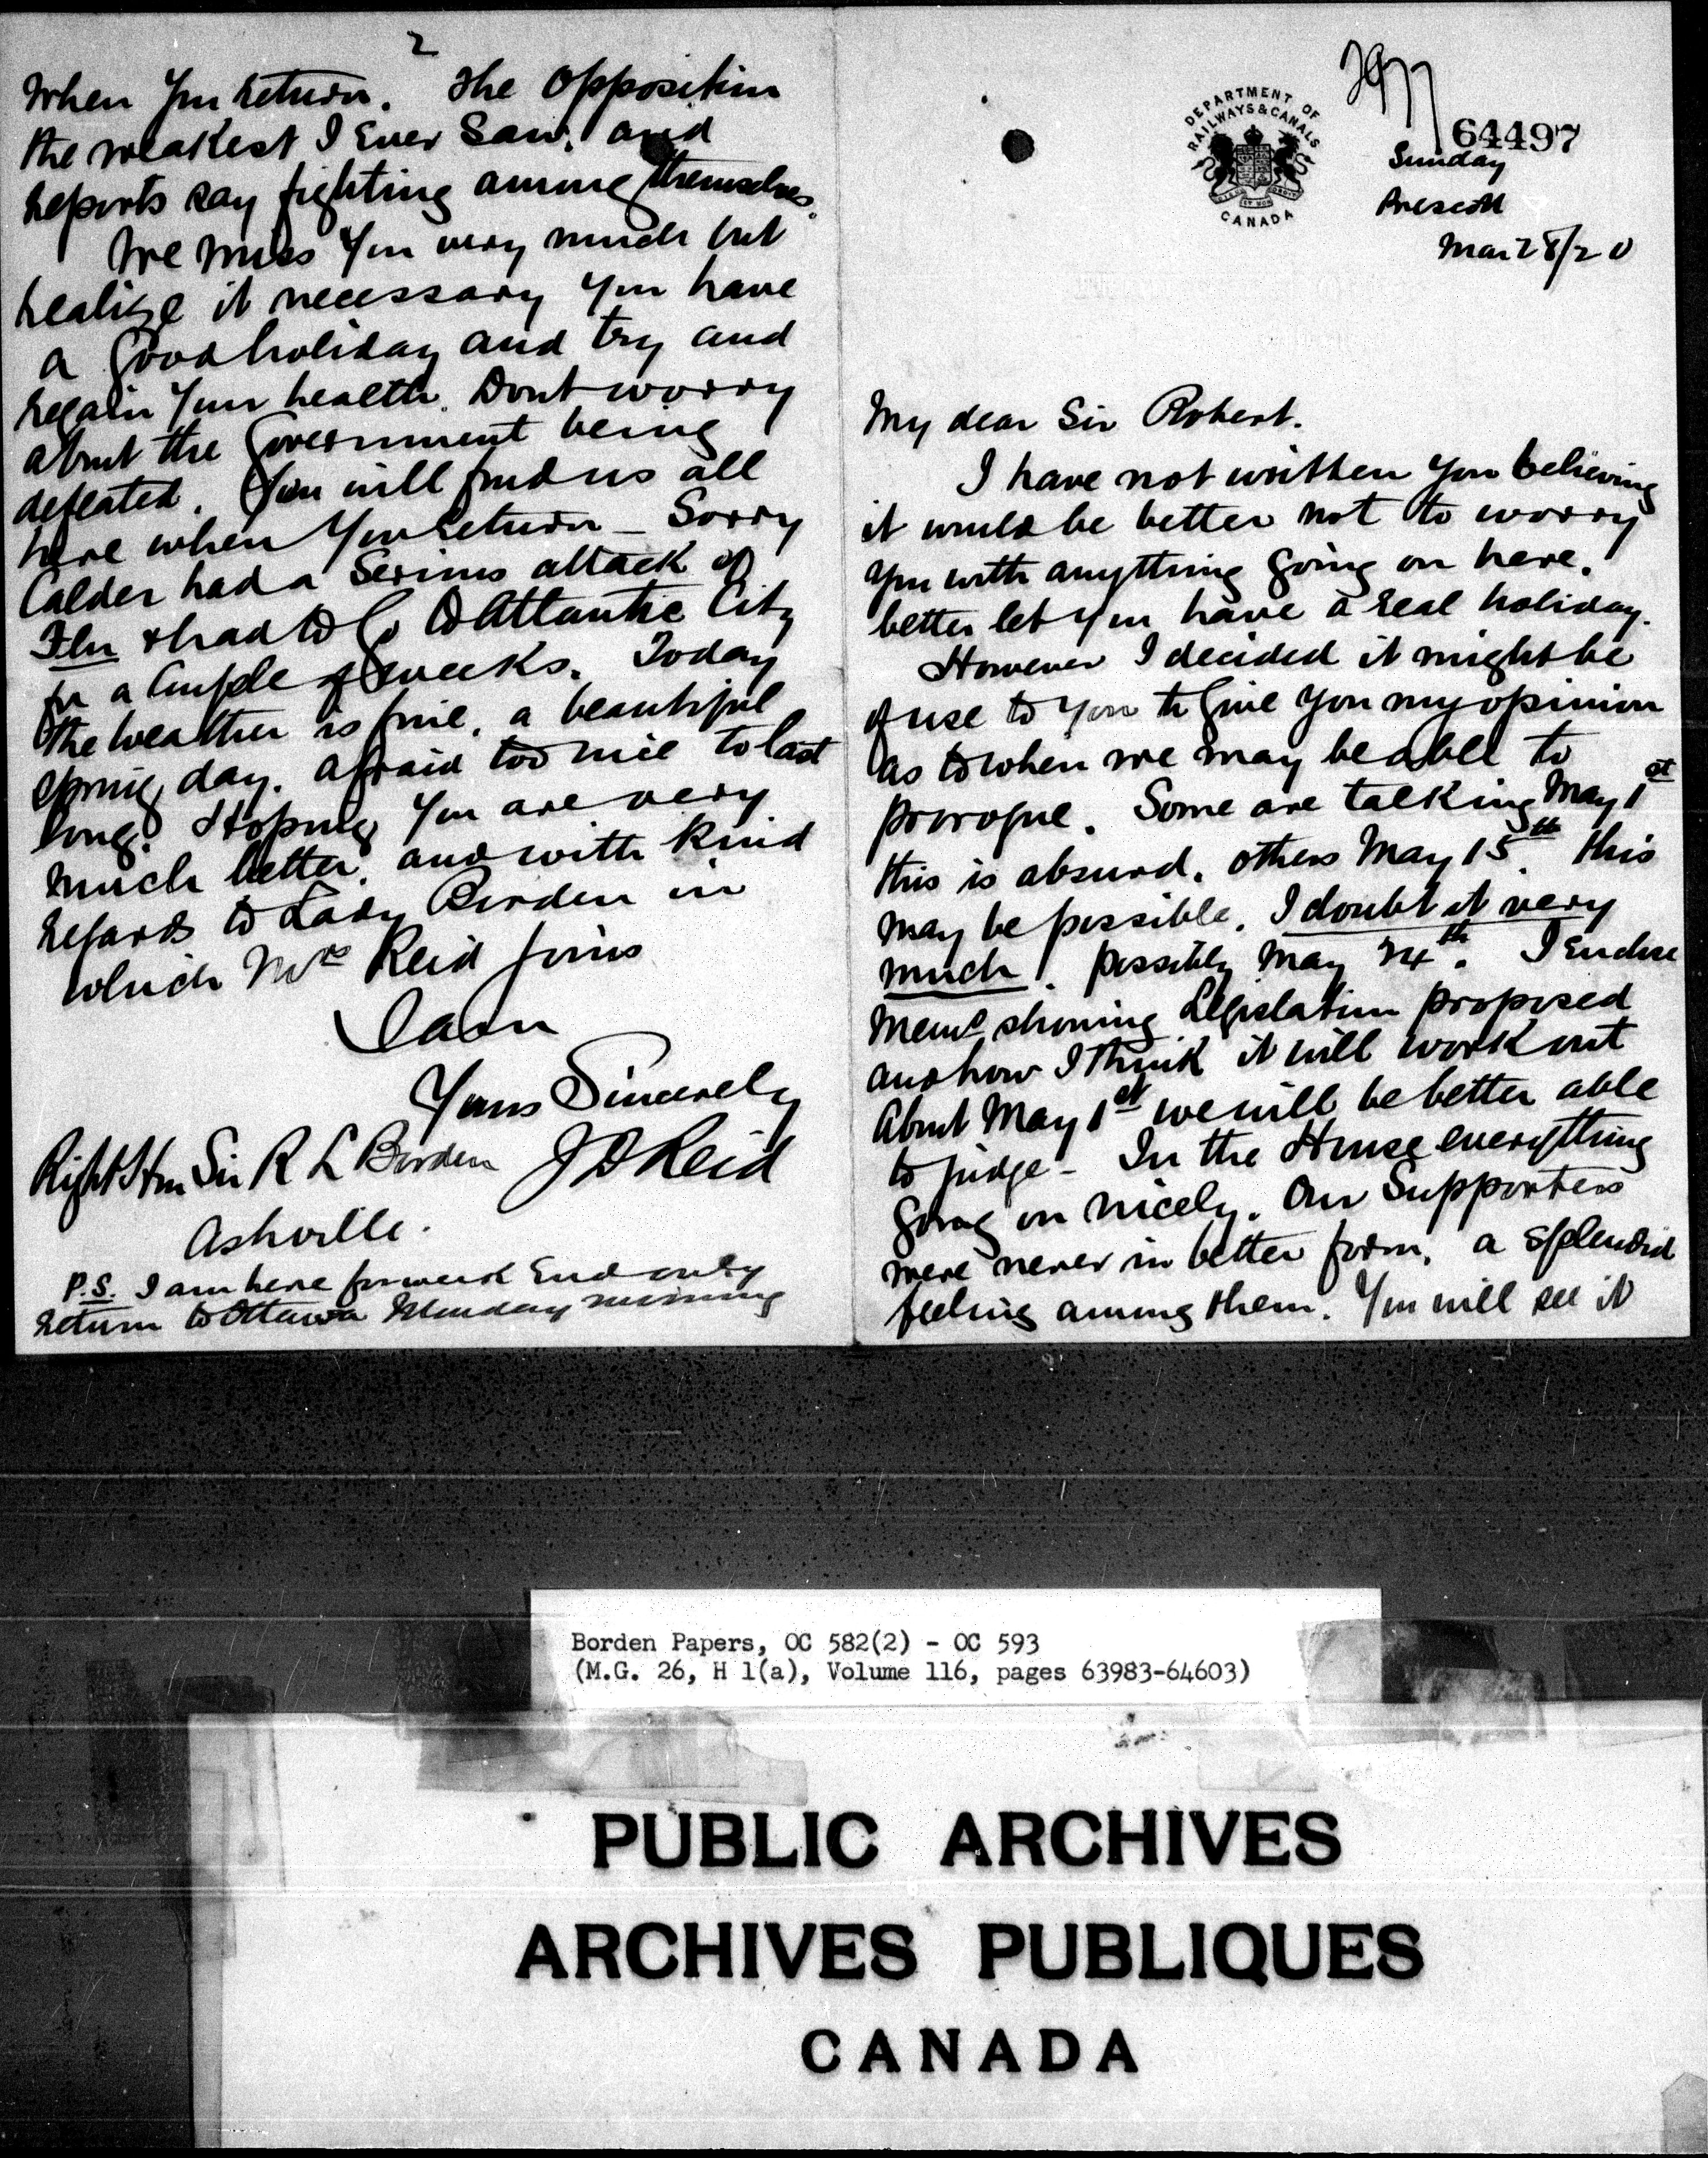 DEPARTMENT OF
RAILWAYS & CANALS
CANADA
64497
Sunday
Prescott
Mar 28/20
My dear Sir Robert.
I have not written you believing
it would be better not to worry
you with anything going on here.
better let you have a real holiday.
However I decided it might be
of use to you to give you my opinion
as to when we may be able to
prorogue. Some are talking May 1st
this is absurd. others May 15th. this
may be possible. I doubt it very
much. possibly May 24th. I enclose
Memo showing Legislation proposed
and how I think it will work out
About May 1st we will be better able
to judge - In the House everything
going on nicely. Our Supporters
were never in better form. a splendid
feeling among them. You will see it
2
when you return. The Opposition
the weakest I ever saw, and
reports say fighting among themselves.
We miss you very much but
realize it necessary you have
a good holiday and try and
regain your health. Dont worry
about the Government being
defeated. You will find us all
here when you return - Sorry
Calder had a serious attack of
Flu & had to go to Atlantic City
for a couple of weeks. Today
the weather is fine, a beautiful
spring day. afraid too nice to last
long. Hoping you are very
much better, and with kind
regards to Lady Borden in
which Mrs Reid joins
I am
Yours Sincerely
J D Reid
Right Hon Sir R L Borden
Ashville.
P.S. I am here for week end only
return to Ottawa Monday morning
Borden Papers, OC 582(2) - OC 593
(M.G. 26, H 1(a), Volume 116, pages 63983-64603)
PUBLIC ARCHIVES
ARCHIVES PUBLIQUES
CANADA